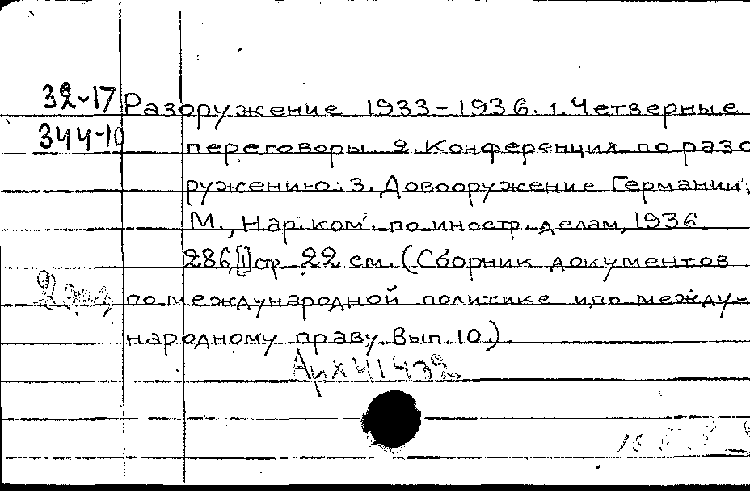 32-17 Разоружение 1933-1936. 1. Четверные
344-10 переговоры. 2. Конференция по разо
ружению. 3. Довооружение Германии.
М., Нар. ком. по иностр. делам, 1936
286[1]стр 22 см. (Сборник документов
2 экз по международной политике и по между-
народному праву. Вып. 10.)
Арх 41432